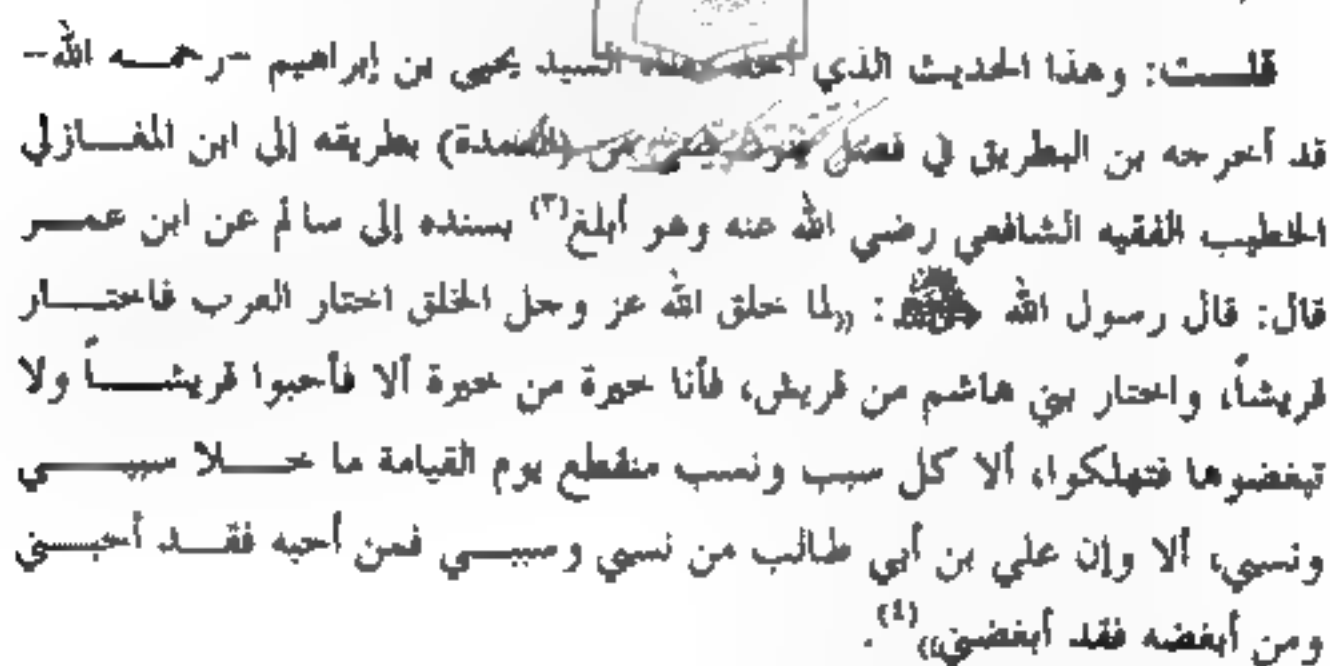 قلت: وهذا الحديث الذي السيد يحيى بن إبراهيم -رحمه الله-
قد أخرجه بن البطريق في فصل من (العمدة) بطريقه إلى ابن المغازلي
الخطيب الفقيه الشافعي رضي الله عنه وهو أبلغ(٣) بسنده إلى سالم عن ابن عمر
قال: قال رسول الله : ((لما خلق الله عز وجل الخلق اختار العرب فاختار
قريشاً، واختار بني هاشم من قريش، فأنا خيرة من خيرة ألا فأحبوا قريشاً ولا
تبغضوها فتهلكوا، ألا كل سبب ونسب منقطع يوم القيامة ما خلا سببي
ونسبي، ألا وإن علي بن أبي طالب من نسبي وسببي فمن أحبه فقد أحبني
ومن أبغضه فقد أبغضني))(٤).